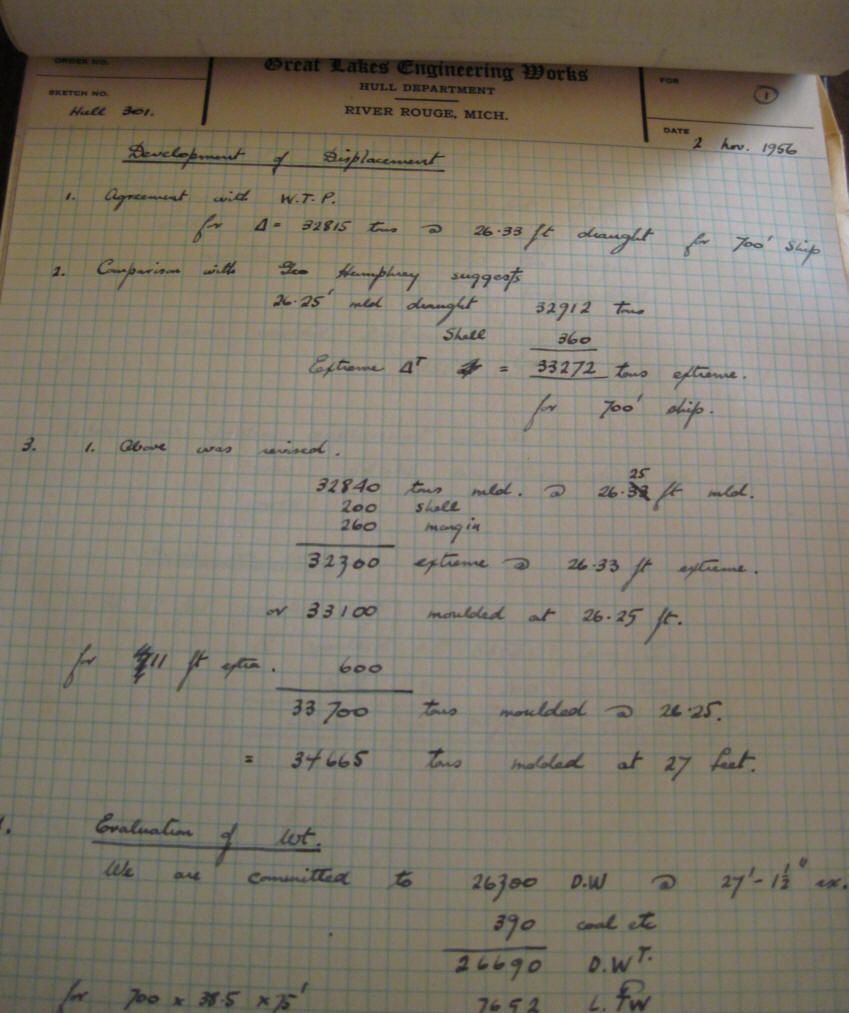 ORDER NO.
Great Lakes Engineering Works
HULL DEPARTMENT
RIVER ROUGE, MICH.
FOR
1
SKETCH NO.
Hull 301.
DATE
2 Nov. 1956
Development of Displacement
1. Agreement with W.T.P.
for Δ = 32815 tons @ 26.33 ft draught for 700' ship
2. Comparison with Geo Humphrey suggests
26.25' mld draught 32912 tons
Shell 360
Extreme ΔT = 33272 tons extreme.
for 700' ship.
3. 1. Above was revised.
32840 tons mld. @ 26.25 ft mld.
200 shell
260 margin
32300 extreme @ 26.33 ft extreme.
or 33100 moulded at 26.25 ft.
for 11 ft extra. 600
33700 tons moulded @ 26.25.
= 34665 tons molded at 27 feet.
Evaluation of Wt.
We are committed to 26300 D.W @ 27'-1½" ex.
390 coal etc
26690 D.WT.
for 700 x 38.5 x 75' 7652 L.